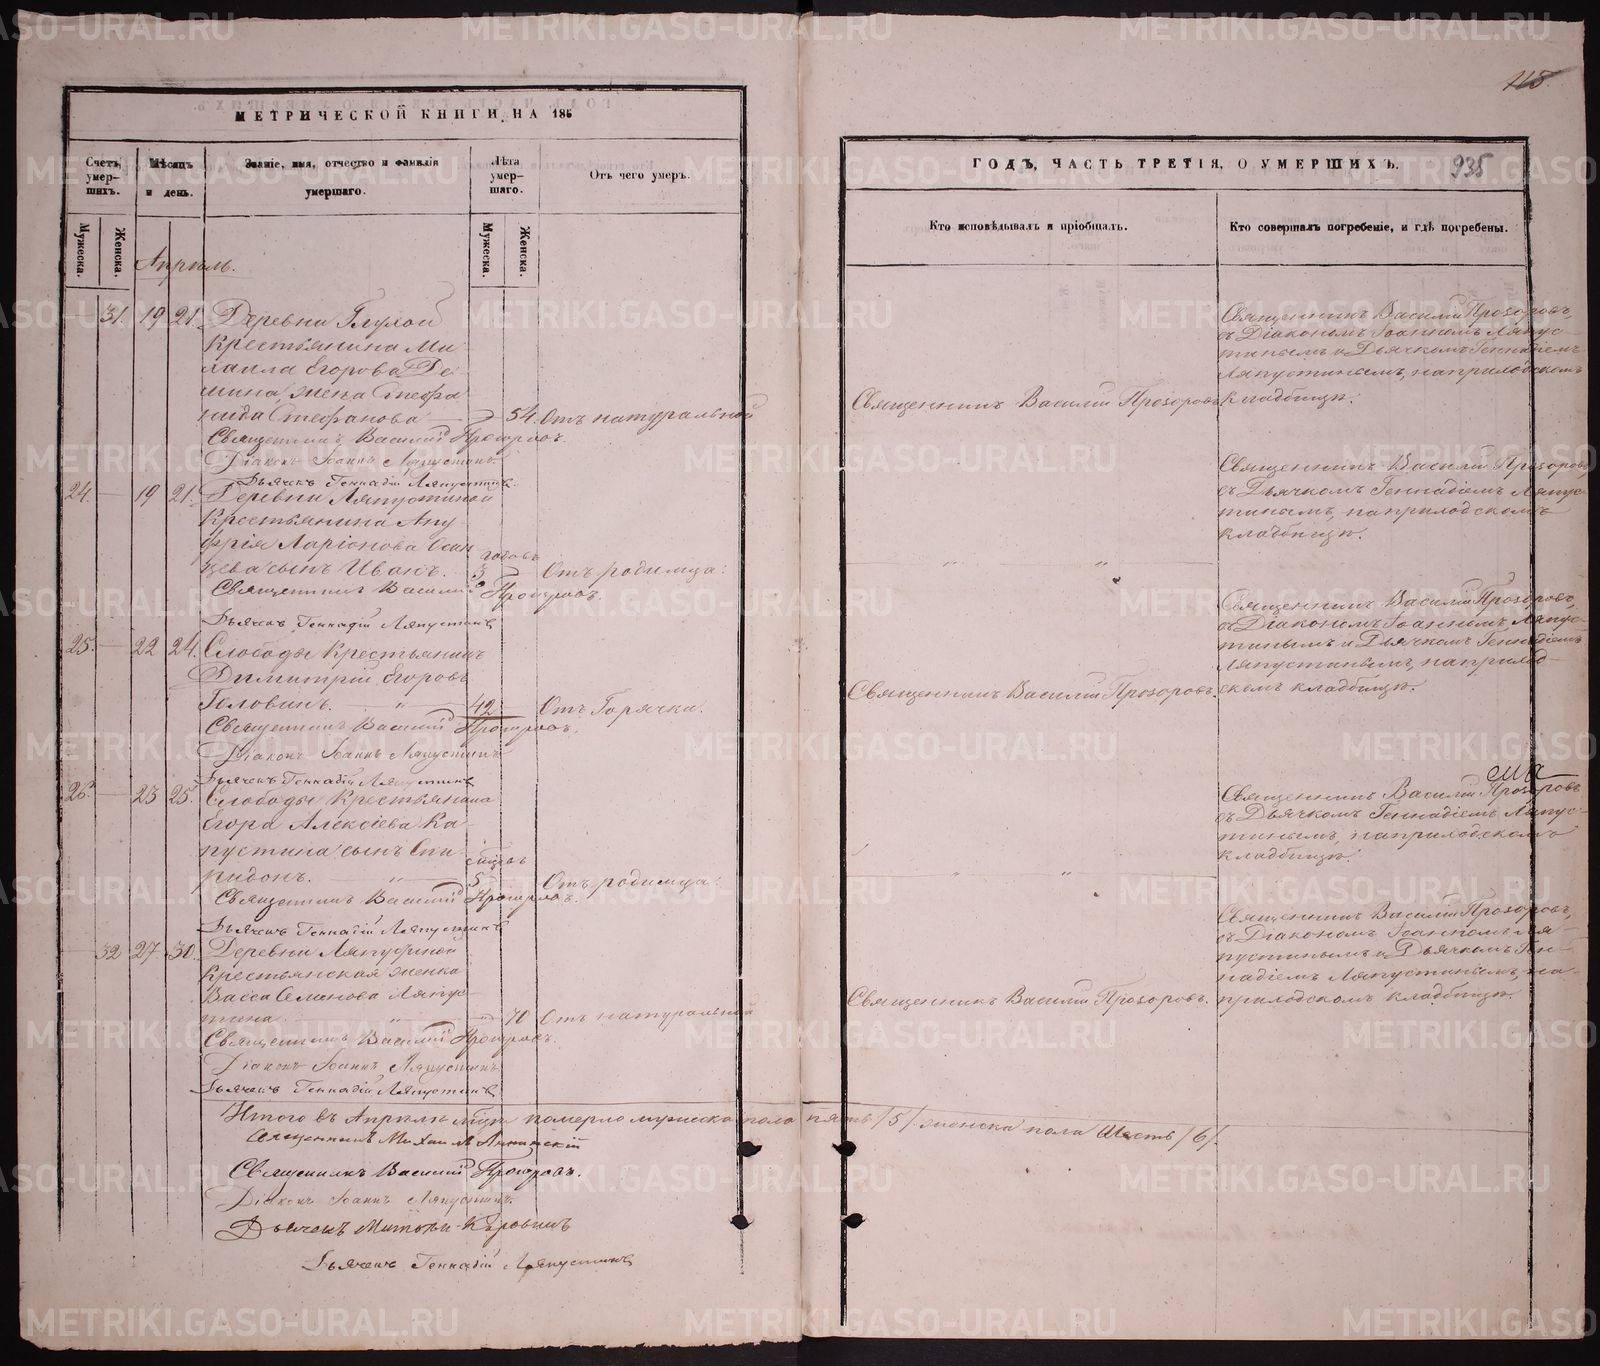 МЕТРИЧЕСКОЙ КНИГИ НА 185
Счетъ умер-шихъ.
Мѣсяцъ и день.
Званіе, имя, отчество и фамилія умершаго.
Лѣта умер-шаго.
Отъ чего умеръ.
Мужеска.
Женска.
Мужеска.
Женска.
Апрѣль.
31. 19 21. Деревни Глухой
крестьянина Ми-
хаила Егорова Де-
мина, жена Стефа-
нида Стефанова 54. Отъ натуральной
Священникъ Василій Прозоровъ.
Діаконъ Іоаннъ Ляпустинъ.
Дьячекъ Геннадій Ляпустинъ.
24. 19 21. Деревни Ляпустиной
крестьянина Ану-
фрія Ларіонова
сынъ Иванъ. 3 Отъ родимца.
Священникъ Василій Прозоровъ.
Дьячекъ Геннадій Ляпустинъ
25. 22 24. Слободы крестьянинъ
Димитрій Егоровъ
Головинъ. " 42 Отъ Горячки.
Священникъ Василій Прозоровъ.
Діаконъ Іоаннъ Ляпустинъ
Дьячекъ Геннадій Ляпустинъ
26. 23 25. Слободы крестьянина
Егора Алексіева Ка-
пустина сынъ Спи-
ридонъ. " 5 Отъ родимца.
Священникъ Василій Прозоровъ.
Дьячекъ Геннадій Ляпустинъ
32 27 30. Деревни Ляпустиной
крестьянская женка
Васса Семенова Ляпус-
тина. " 70 Отъ натуральной
Священникъ Василій Прозоровъ.
Діаконъ Іоаннъ Ляпустинъ
Дьячекъ Геннадій Ляпустинъ
Итого въ Апрѣлѣ мѣсяцѣ померло мужеска пола пять /5/ женска пола шесть /6/.
Священникъ Михаилъ
Священникъ Василій Прозоровъ.
Діаконъ Іоаннъ Ляпустинъ.
Дьячекъ
Дьячекъ Геннадій Ляпустинъ
115.
ГОДЪ, ЧАСТЬ ТРЕТІЯ, О УМЕРШИХЪ. 935
Кто исповѣдывалъ и пріобщалъ.
Кто совершалъ погребеніе, и гдѣ погребены.
Священникъ Василій Прозоровъ,
съ Діакономъ Іоанномъ Ляпус-
тинымъ и Дьячкомъ Геннадіемъ
Ляпустинымъ, на приходскомъ
Священникъ Василій Прозоровъ кладбищѣ.
Священникъ Василій Прозоровъ,
съ Дьячкомъ Геннадіемъ Ляпус-
тинымъ, на приходскомъ
кладбищѣ.
" "
Священникъ Василій Прозоровъ,
съ Діакономъ Іоанномъ Ляпус-
тинымъ и Дьячкомъ Геннадіемъ
Ляпустинымъ, на приход-
Священникъ Василій Прозоровъ. скомъ кладбищѣ.
Священникъ Василій Прозоровъ
съ Дьячкомъ Геннадіемъ Ляпус-
тинымъ, на приходскомъ
кладбищѣ.
" "
Священникъ Василій Прозоровъ,
съ Діакономъ Іоанномъ Ля-
пустинымъ и Дьячкомъ Ген-
надіемъ Ляпустинымъ, на
Священникъ Василій Прозоровъ. приходскомъ кладбищѣ.
METRIKI.GASO-URAL.RU